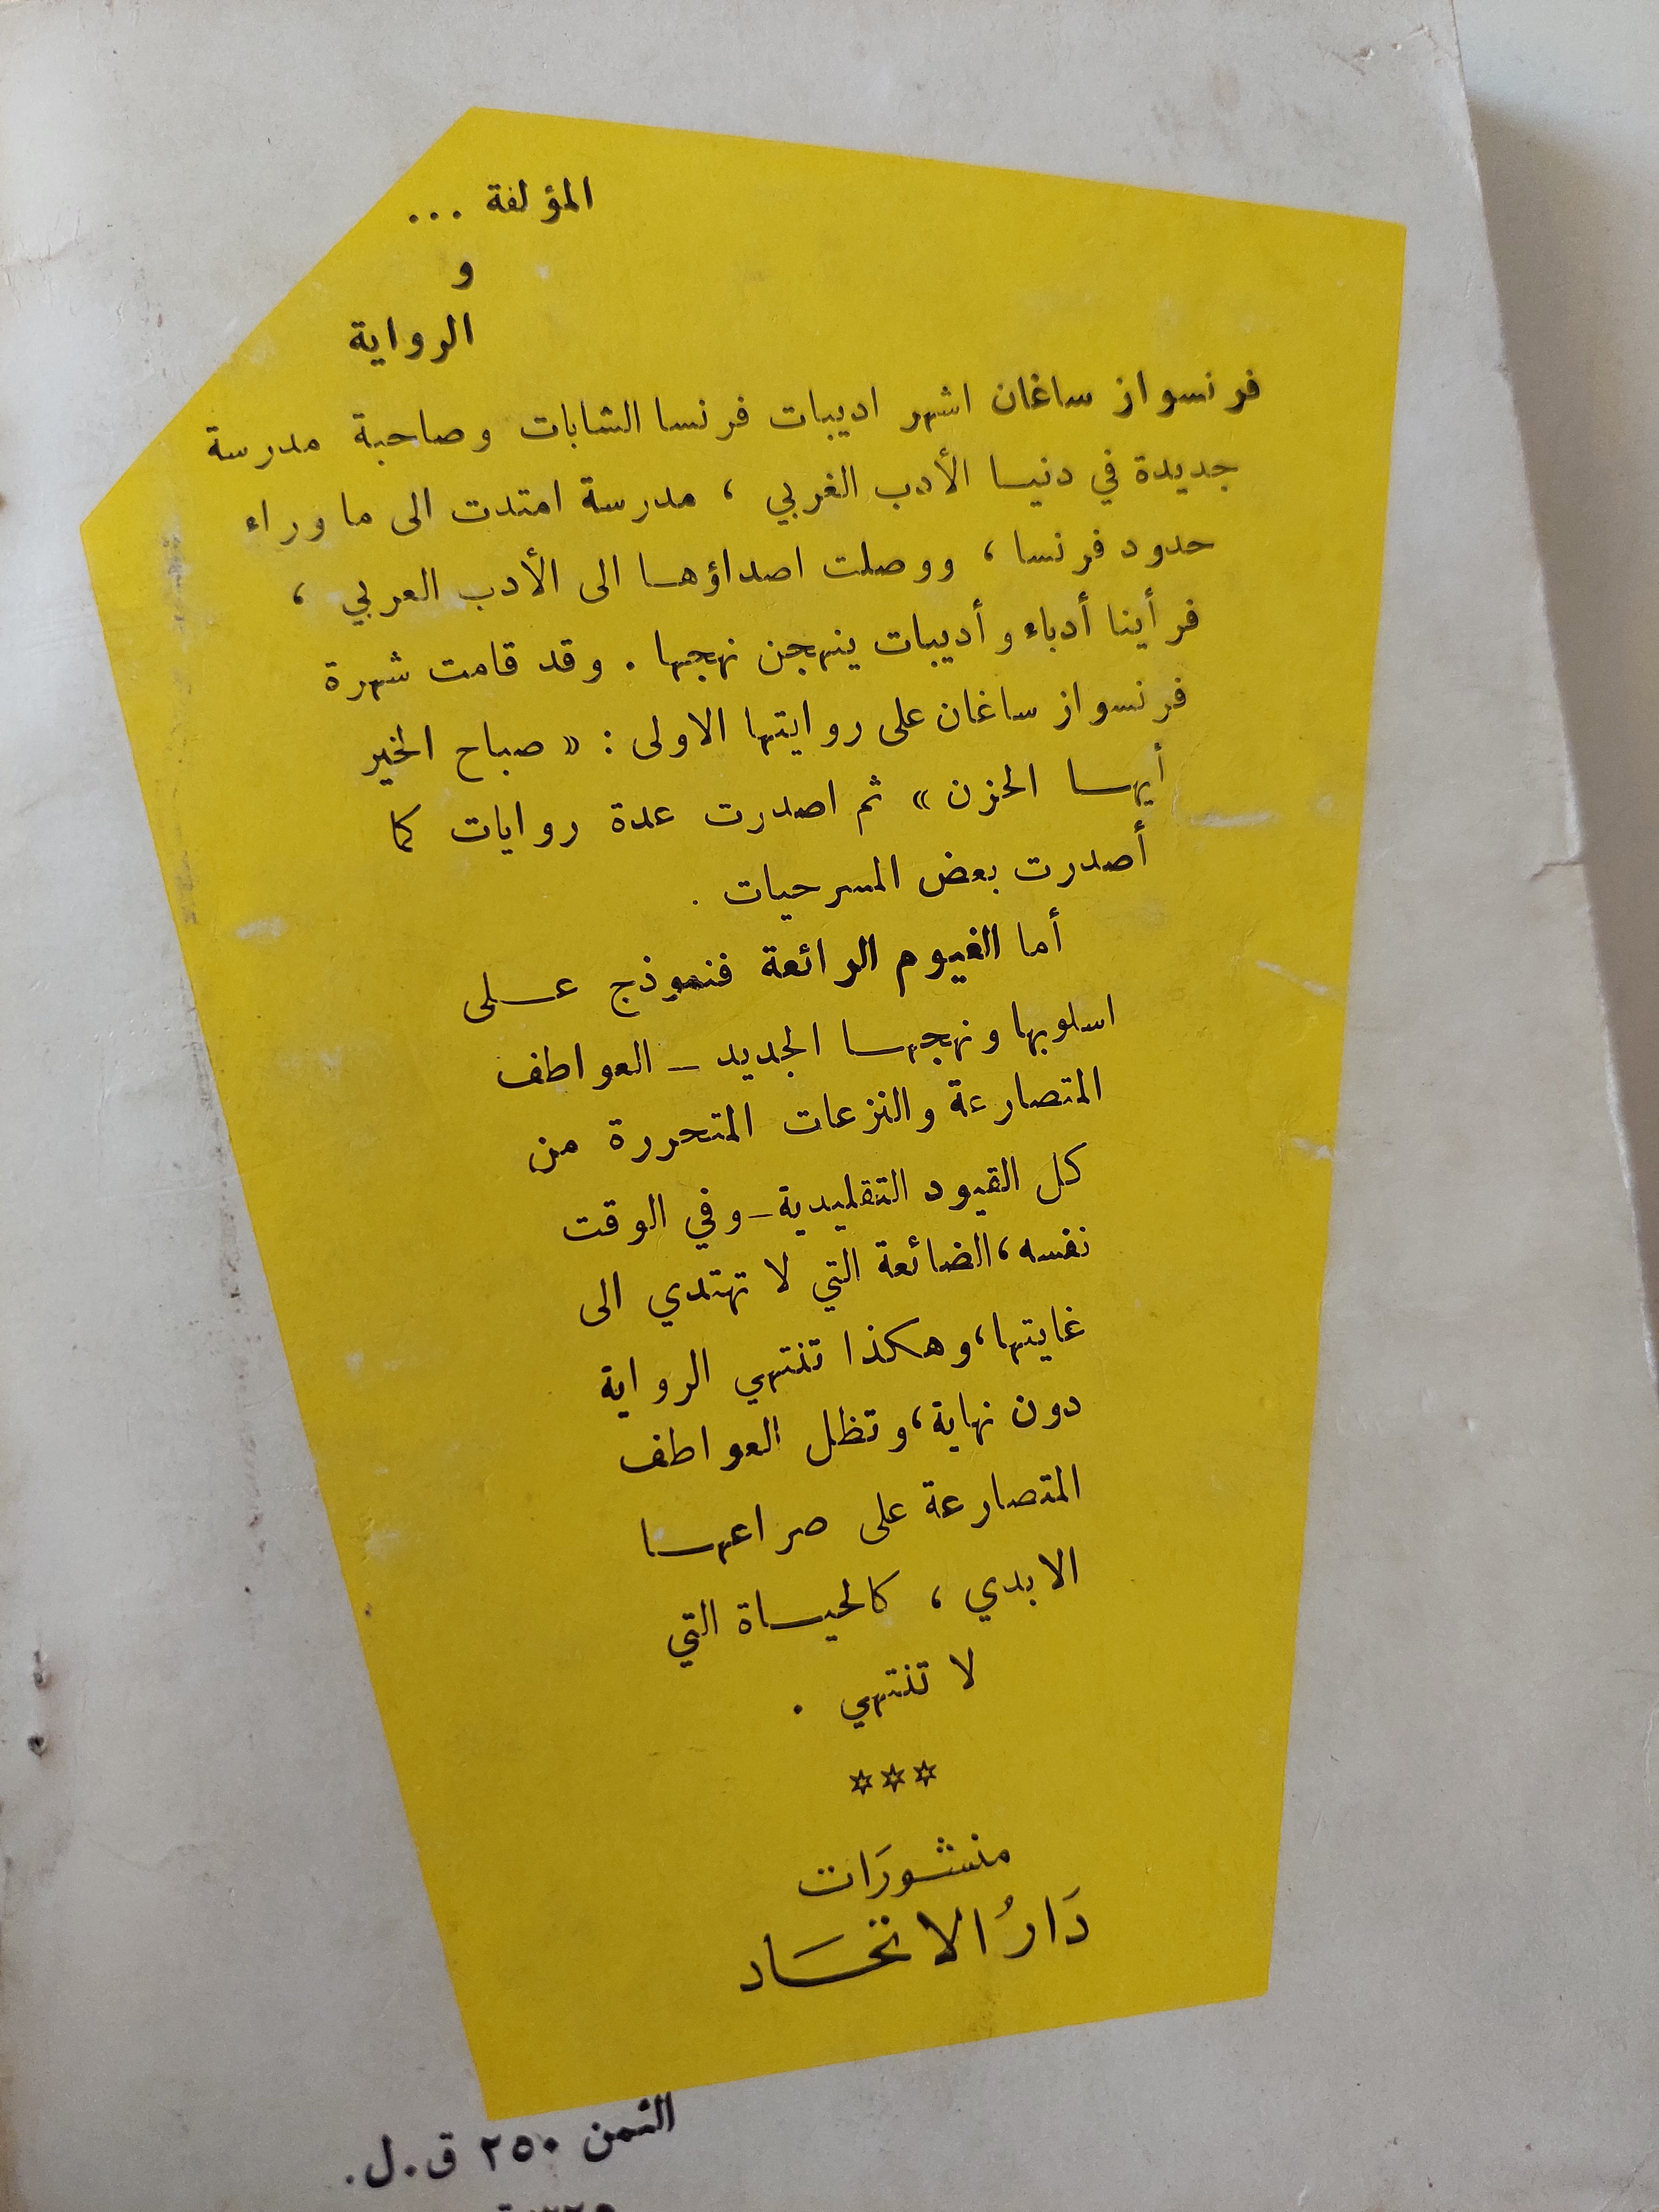 المؤلفة ...
و
الرواية
فرنسواز ساغان اشهر اديبات فرنسا الشابات وصاحبة مدرسة
جديدة في دنيا الأدب الغربي ، مدرسة امتدت الى ما وراء
حدود فرنسا ، ووصلت اصداؤها الى الأدب العربي ،
فرأينا أدباء وأديبات ينهجن نهجها . وقد قامت شهرة
فرنسواز ساغان على روايتها الاولى : « صباح الخير
أيها الحزن » ثم اصدرت عدة روايات كما
أصدرت بعض المسرحيات .
أما الغيوم الرائعة فنموذج على
اسلوبها ونهجها الجديد – العواطف
المتصارعة والنزعات المتحررة من
كل القيود التقليدية – وفي الوقت
نفسه ، الضائعة التي لا تهتدي الى
غايتها ، وهكذا تنتهي الرواية
دون نهاية ، وتظل العواطف
المتصارعة على صراعها
الابدي ، كالحياة التي
لا تنتهي .
***
منشورَات
دَارُ الاتحَاد
الثمن ٢٥٠ ق.ل.